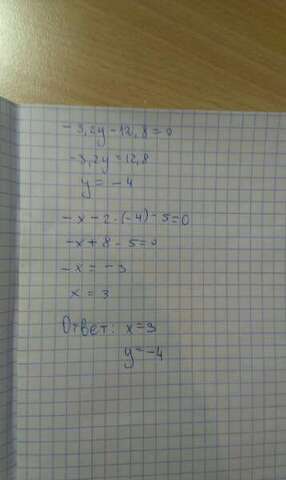 -3,2y-12,8=0
-3,2y=12,8
y=-4
-x-2·(-4)-5=0
-x+8-5=0
-x=-3
x=3
Ответ: x=3
y=-4